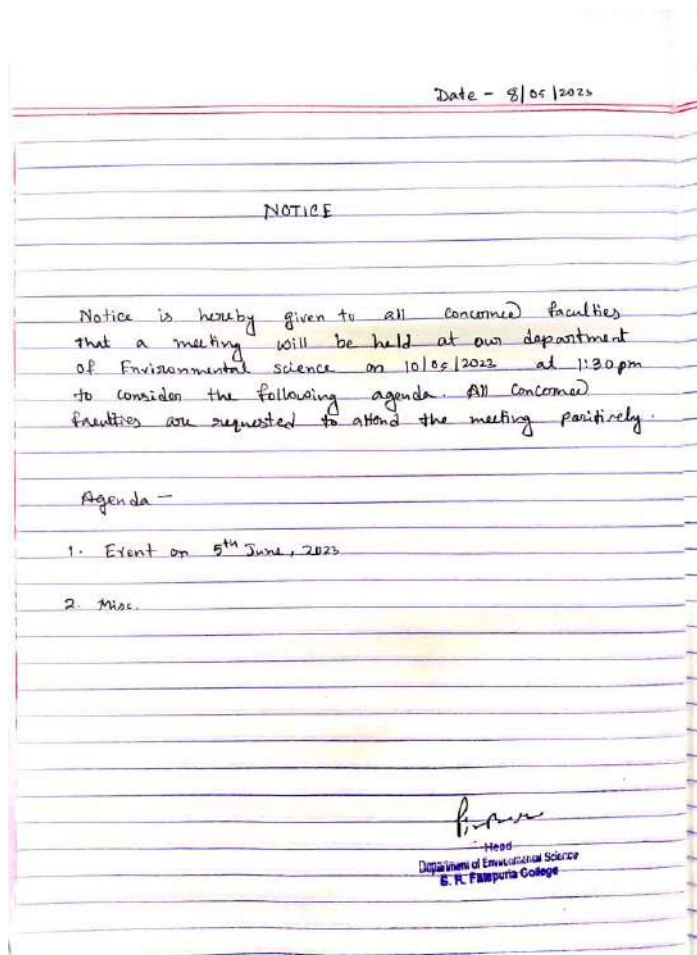 Date - 8/05/2023
NOTICE
Notice is hereby given to all concerned faculties
that a meeting will be held at our department
of Environmental science on 10/05/2023 at 1:30 pm
to consider the following agenda. All concerned
faculties are requested to attend the meeting positively.
Agenda -
1. Event on 5th June, 2023
2. Misc.
Head
Department of Environmental Science
S. R. Fatepuria College